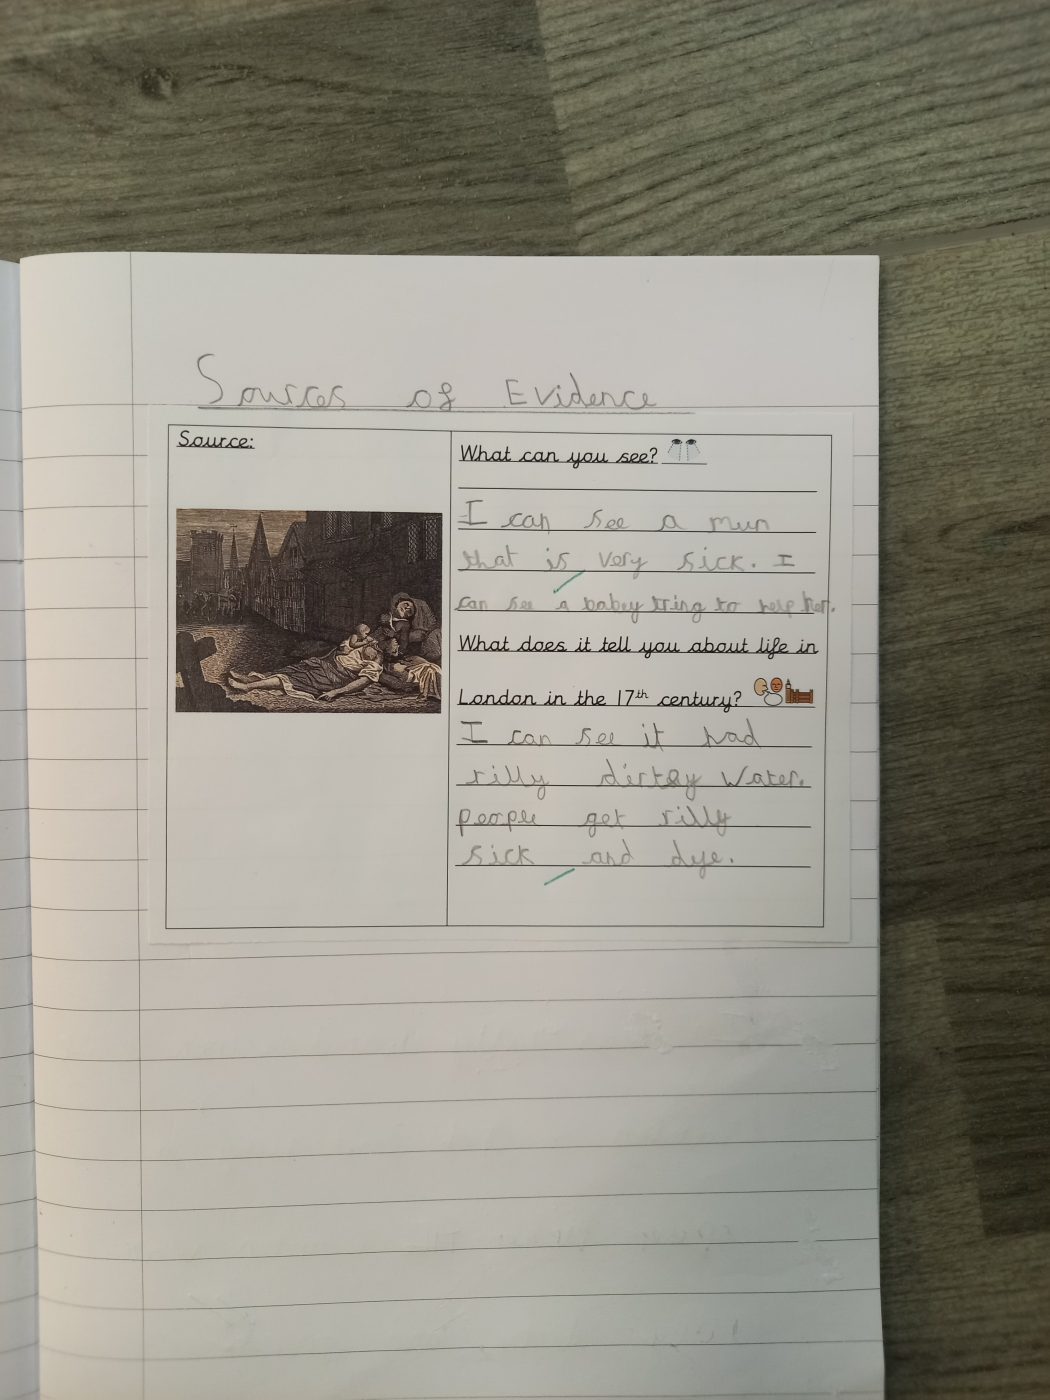 Sources of Evidence
Source:
What can you see?
I can see a mun
that is very sick. I
can see a babey tring to help her.
What does it tell you about life in
London in the 17th century?
I can see it had
rilly dirtey water.
people get rilly
sick and dye.